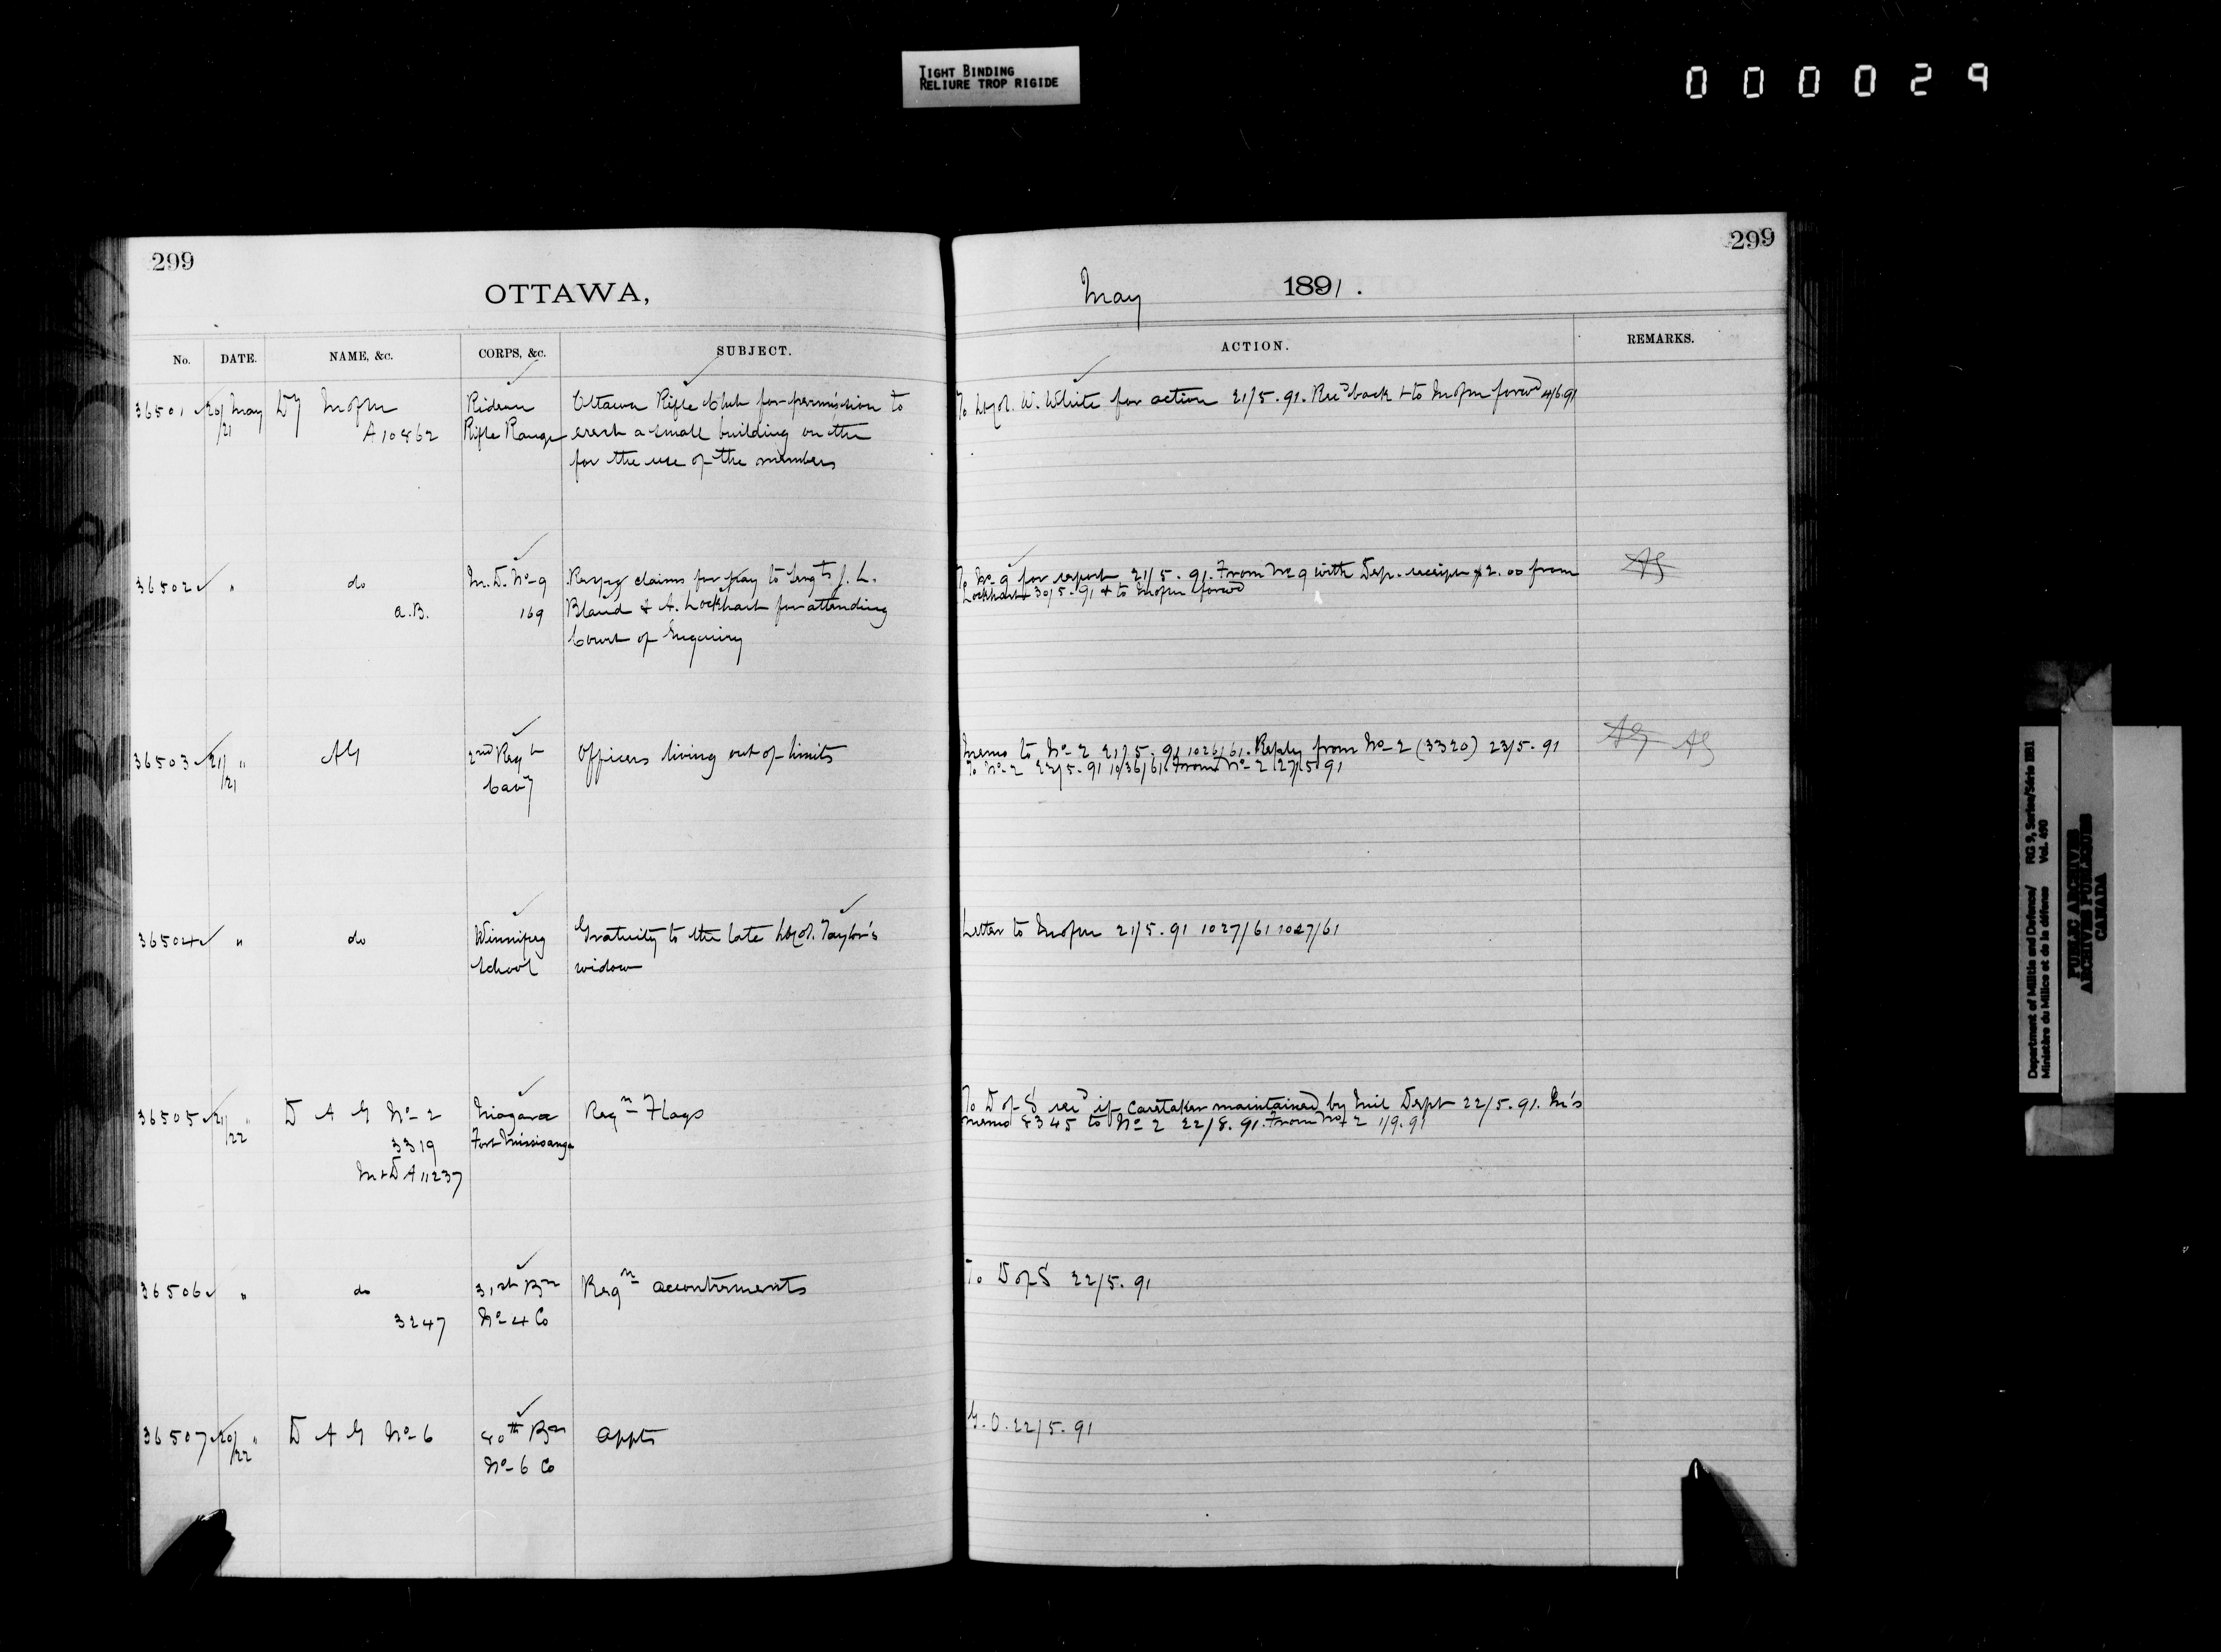 TIGHT BINDING
RELIURE TROP RIGIDE
000029
299
OTTAWA,
No. DATE. NAME, &c. CORPS, &c. SUBJECT.
36501 20/21 May Dy M of M Rideau Ottawa Rifle Club for permission to
A10862 Rifle Range erect a small building on the
for the use of the members
36502 " do M.D. No 9 claims for pay to Sergts J. L.
a.B. 169 Bland & A. Lockhart for attending
Court of Enquiry
36503 21/21 " AG 2nd Regt Officers living out of limits
Cavy
36504 " do Winnipeg Gratuity to the late Lt Col. Taylor's
School widow
36505 21/22 " D A G No 2 Niagara Reqn Flags
3319 Fort Mississauga
M&D A11237
36506 " do 31st Bn Reqn accoutrements
3247 No 4 Co
36507 20/22 " D A G No 6 80th Bn Appts
No 6 Co
299
May 1891.
ACTION. REMARKS.
To Lt Col. W. White for action 21/5.91. Recd back & to M of M forwd 4/6.91
To No 9 for report 21/5.91. From No 9 with Dep. receipt $2.00 from AG
Lockhart 30/5.91 & to M of M forwd
Memo to No 2 21/5.91 1026/61. Reply from No 2 (3320) 23/5.91 AG AG
To No 2 22/5.91 1036/61. From No 2 27/5/91
Letter to M of M 21/5.91 1027/61 1027/61
To D of S if Caretaker maintained by Mil Dept 22/5.91. M's
memo 8345 to No 2 22/8.91. From No 2 1/9.91
To D of S 22/5.91
G.O. 22/5.91
Department of Militia and Defence/ RG 9, Series/Série IIB1
Ministère du Milice et de la défense Vol. 490
PUBLIC ARCHIVES
ARCHIVES PUBLIQUES
CANADA